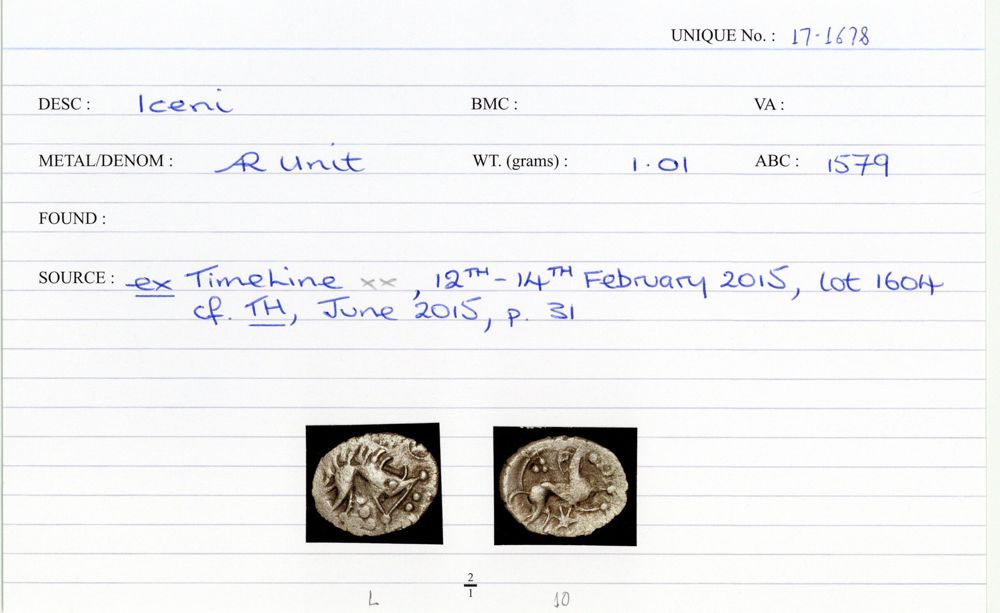 UNIQUE No. : 17-1678
DESC : Iceni BMC : VA :
METAL/DENOM : AR Unit WT. (grams) : 1.01 ABC : 1579
FOUND :
SOURCE : ex TimeLine xx, 12TH - 14TH February 2015, lot 1604
cf. TH, June 2015, p. 31
2
1
L 10